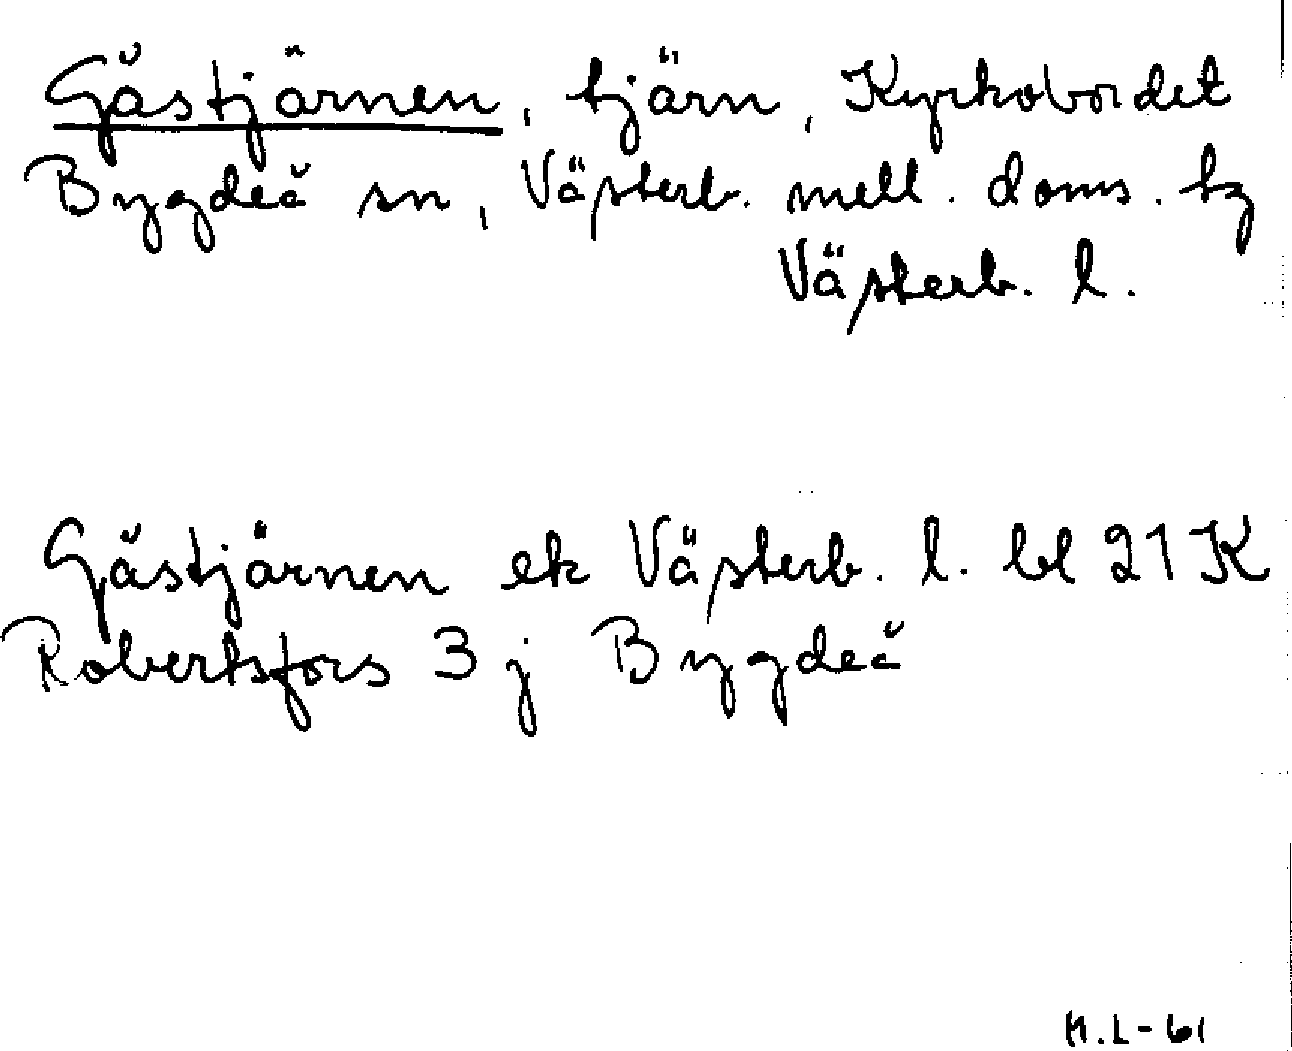 Gåstjärnen, tjärn, Kyrkobordet
Bygdeå sn, Västerb. mell. doms. tg
Västerb. l.
Gåstjärnen ek Västerb. l. bl 21 K
Robertsfors 3 j Bygdeå
M.L-61